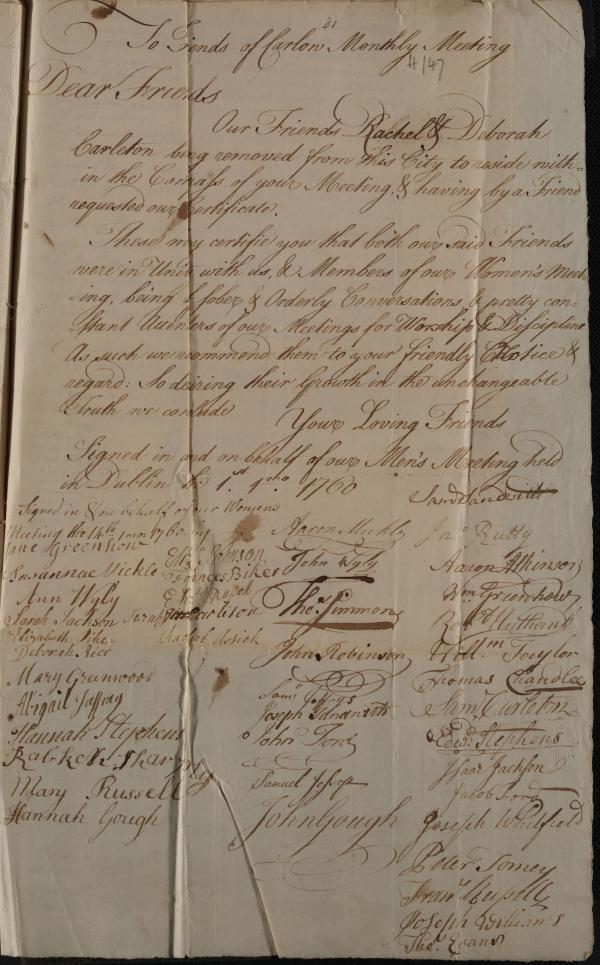 31
To Friends of Carlow Monthly Meeting
4/147
Dear Friends
Our Friends Rachel & Deborah
Carleton being removed from this City to reside with-
in the Compass of your Meeting, & having by a Friend
requested our Certificate.
These may certify you that both our said Friends
were in Unity with us, & Members of our Women's Meet-
-ing, being of sober & Orderly Conversations, & pretty con-
-stant Attenders of our Meetings for Worship & Discipline
As such we recommend them to your friendly Notice &
regard: So desiring their Growth in the unchangeable
Truth we conclude
Your Loving Friends
Signed in and on behalf of our Men's Meeting held
in Dublin the 1st. 1mo. 1760
Signed in & on behalf of our Womens
Meeting the 14th 1 mo 1760 by
Jane Greenhow
Susannae Mickle
Ann Wyly
Sarah Jackson
Elizabeth Pike
Deborah Rice
Mary Greenwood
Abigail Jaffray
Hannah Stephens
Mary Russell
Hannah Gough
Eliza Johnson
Frances Biker
Russell
Sarah Carleton
Rachel
Aaron Mickle
John Wyly
Thos. Simmons
John Robinson
Saml Jeffrys
Joseph Sandwith
John Ford
Samuel Jessop
John Gough
Saml Sandwith
Jno. Rutty
Aaron Atkinson
Wm. Greenhow
Robt
Willm Taylor
Thomas Chandlee
Saml. Carleton
Edwd. Stephens
Isaac Jackson
Jacob Ford
Joseph Whitfield
Peter Tomey
Frans. Russell
Joseph Williams
Thos. Evans